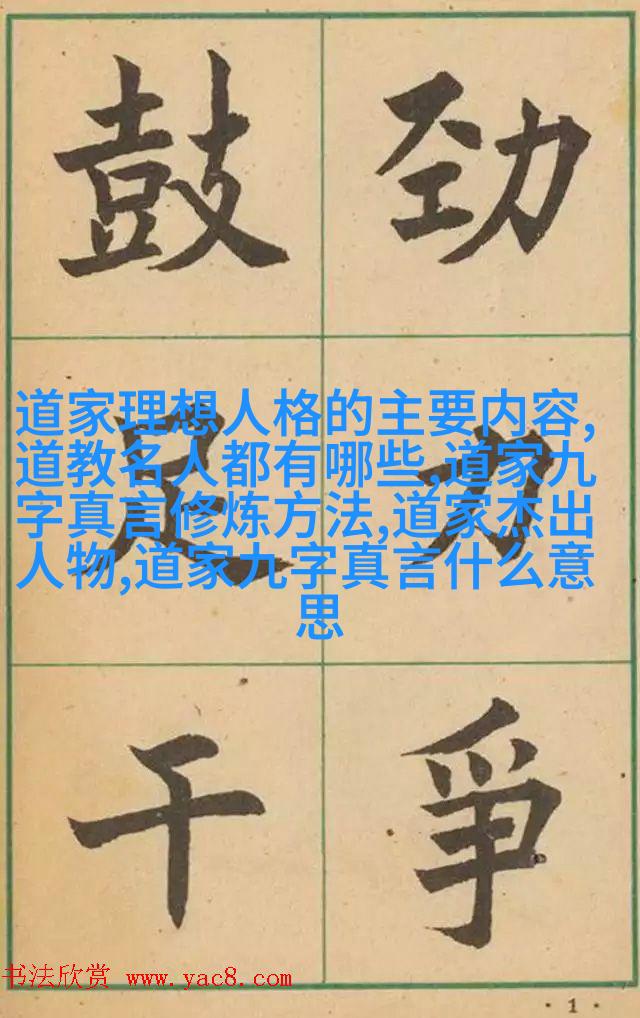 鼓足干
劲力爭
道家理想人格的主要内容,
道教名人都有哪些,道家九
字真言修炼方法,道家杰出
人物,道家九字真言什么意
思
书法欣赏 www.yac8.com
·1·